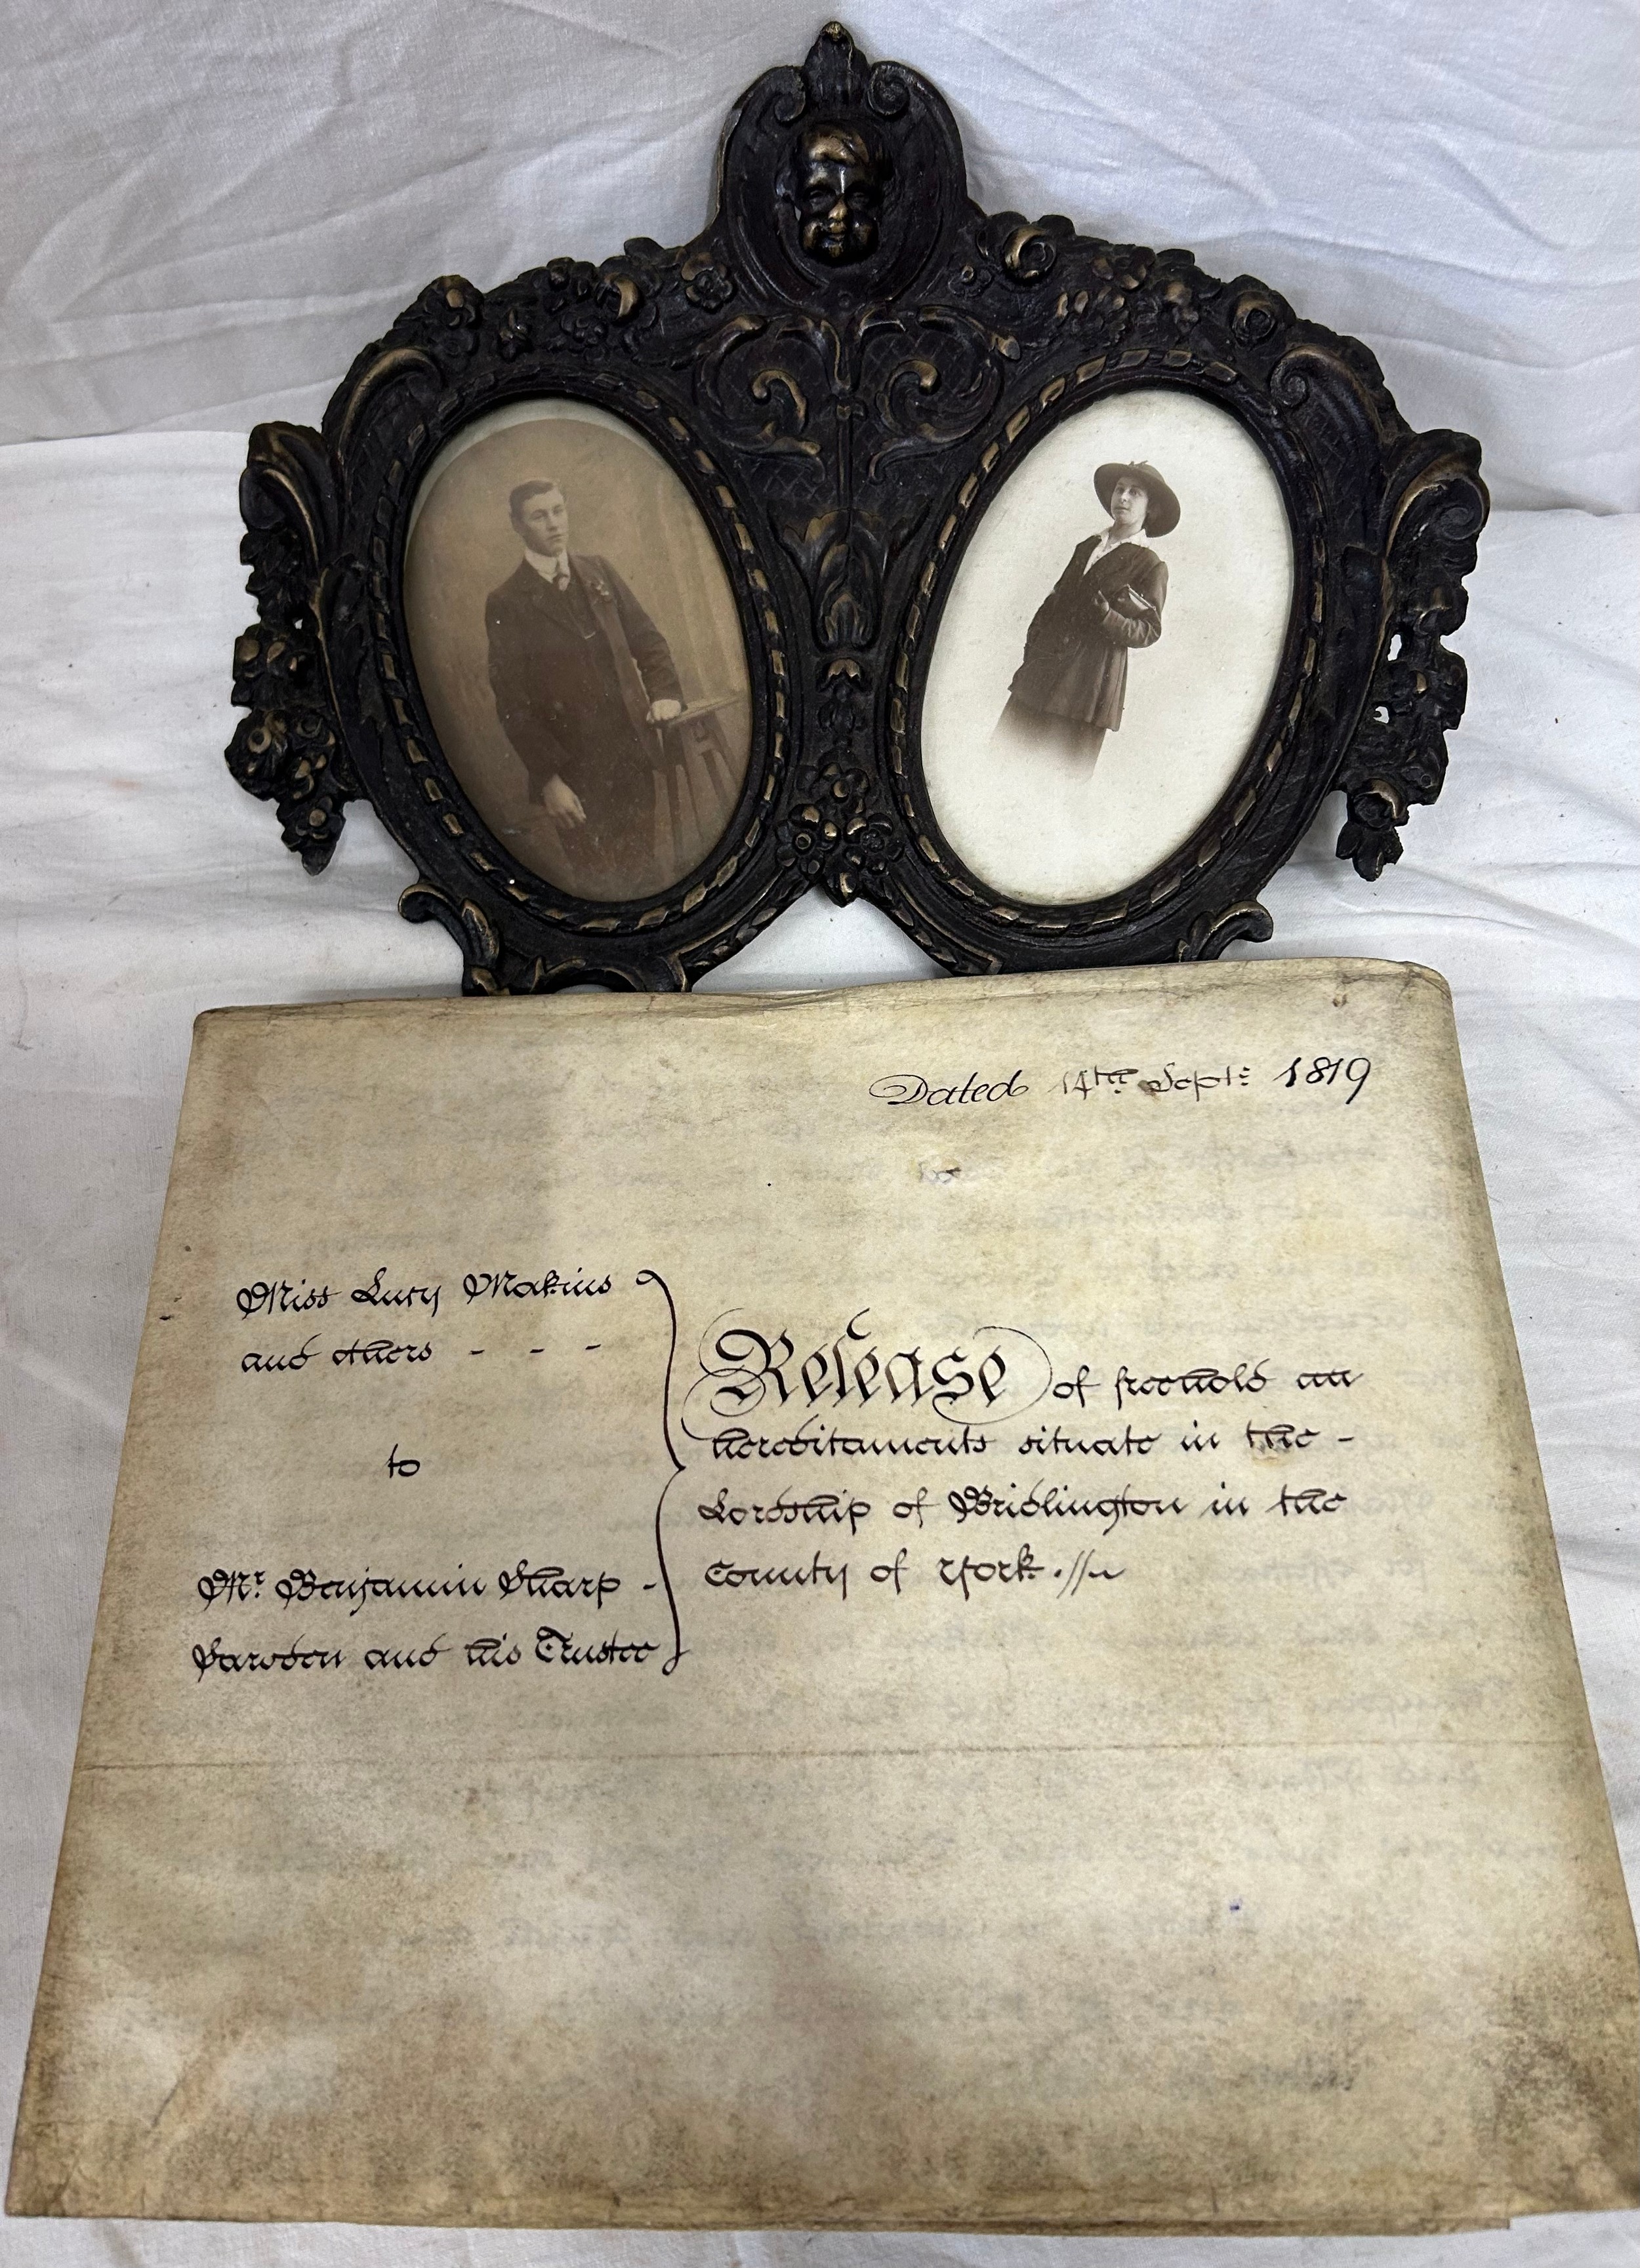 Dated 14th Septr 1819
Miss Lucy Makins
and others - - -
to
Mr. Benjamin Sharp -
Sawden and his Trustee
Release of freehold
hereditaments situate in the -
Lordship of Bridlington in the
County of York.